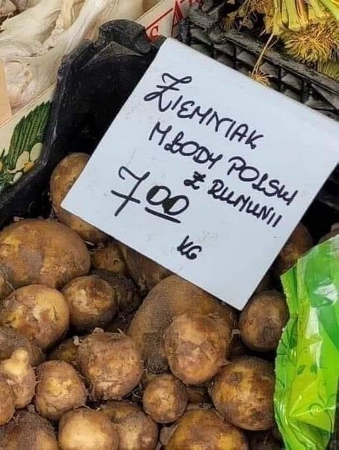 ZIEMNIAK
MŁODY POLSKI
Z RUMUNII
7.00
KG